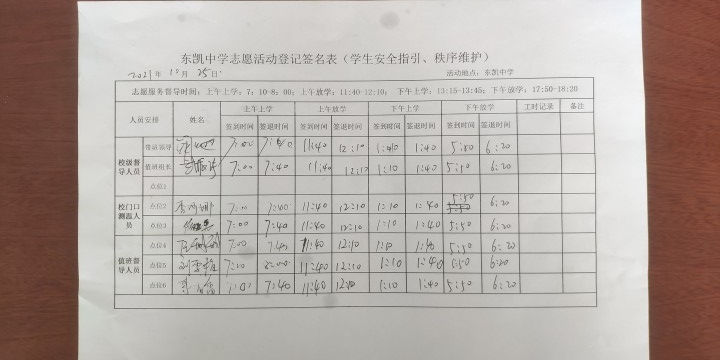 东凯中学志愿活动登记签名表（学生安全指引、秩序维护）
2021年10月25日 活动地点：东凯中学
志愿服务督导时间：上午上学：7：10-8：00；上午放学：11:40-12:10； 下午上学：13:15-13:45； 下午放学：17:50-18:20
人员安排 姓名 上午上学 上午放学 下午上学 下午放学 工时记录 备注
签到时间 签退时间 签到时间 签退时间 签到时间 签退时间 签到时间 签退时间
校级督导人员 带班领导 7:00 7:40 11:40 12:10 1:40 5:50 6:20
值班组长 7:00 7:40 11:40 12:10 1:10 1:40 5:50 6:20
点位1
校门口测温人员 点位2 7:00 7:40 11:40 12:10 1:10 1:40 5:50 6:20
点位3 7:00 7:40 11:40 12:10 1:10 1:40 5:50 6:20
值班督导人员 点位4 7:00 7:40 11:40 12:10 1:10 1:40 5:50 6:20
点位5 8:00 11:40 12:10 1:10 1:40 5:50 6:20
点位6 7:40 11:40 12:10 1:10 1:40 5:50 6:20